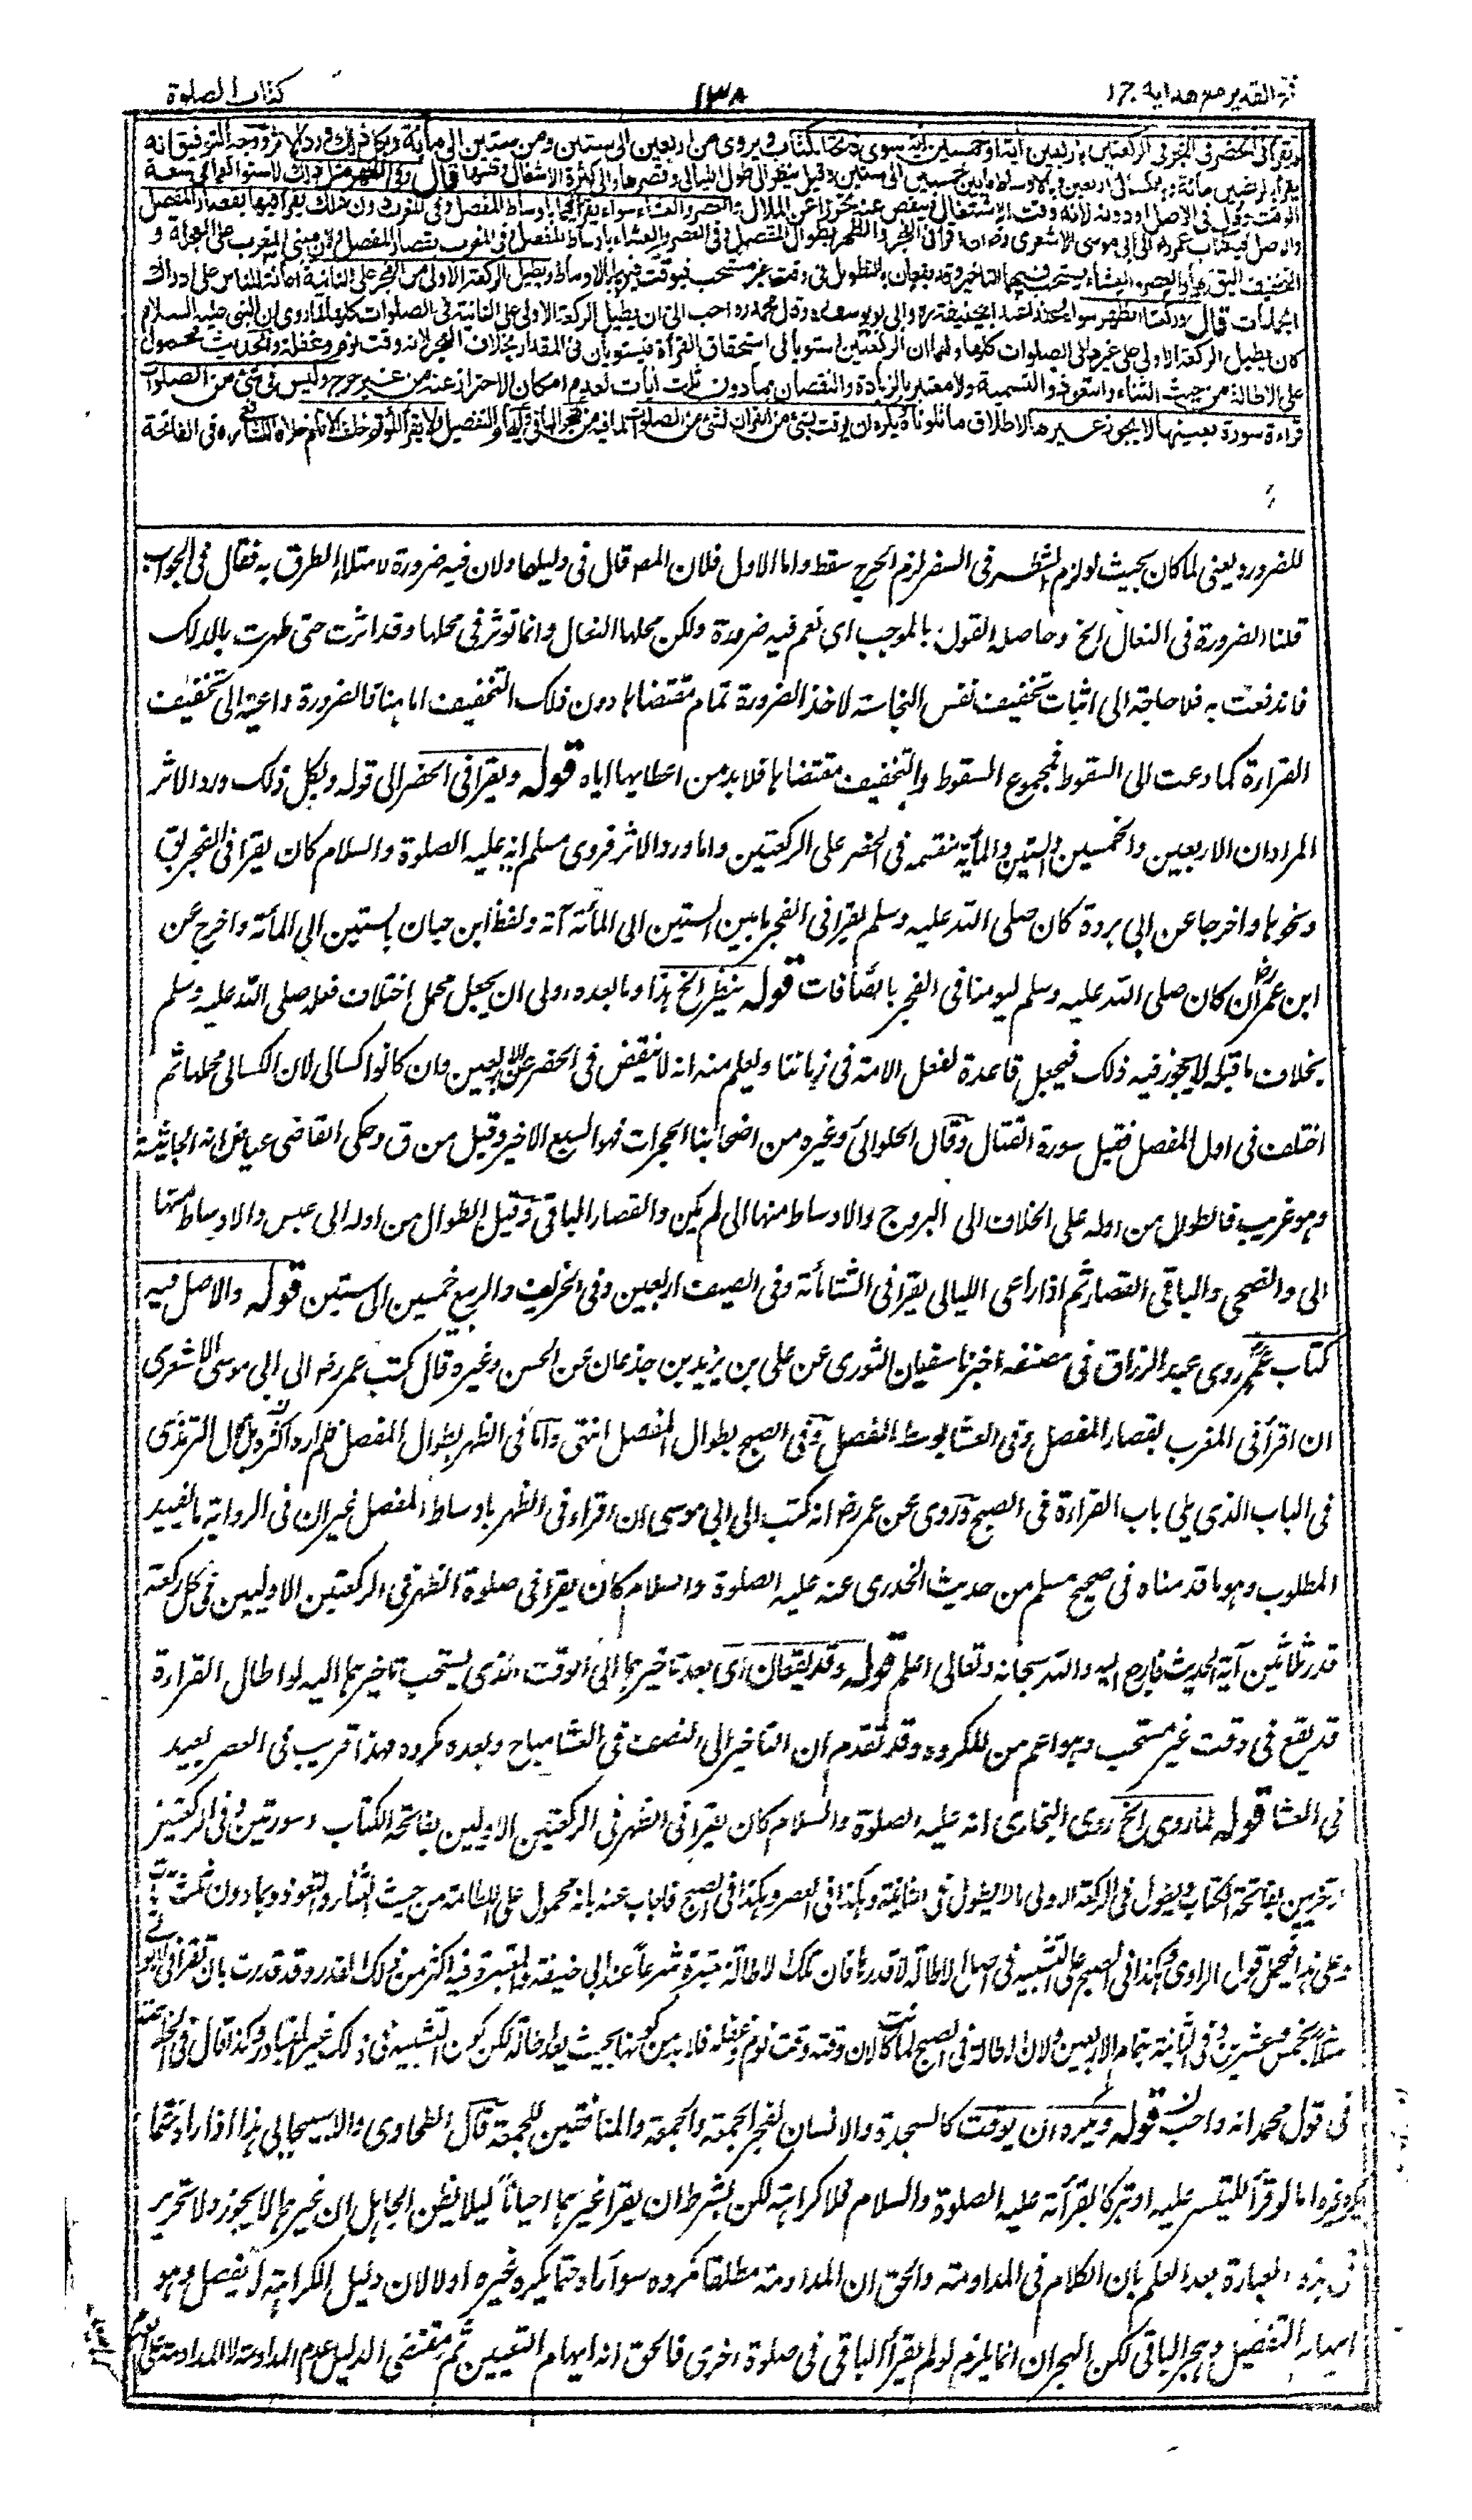 فتح القدير مع هداية ج ١
١٣٨
كتاب الصلوة
ويقرأ في الحضر في الفجر في الركعتين باربعين آية او خمسين آية سوى فاتحة الكتاب ويروى من اربعين الى ستين ومن ستين الى مائة وبكل ذلك ورد الاثر ووجه التوفيق انه
يقرأ بالراغبين مائة وبالكسالى اربعين وبالاوساط ما بين خمسين الى ستين وقيل ينظر الى طول الليالي وقصرها والى كثرة الاشغال وقلتها قال وفي الظهر مثل ذلك لاستوائهما في سعة
الوقت وقال في الاصل او دونه لانه وقت الاشتغال فينقص عنه تحرزا عن الملال والعصر والعشاء سواء يقرأ فيهما باوساط المفصل وفي المغرب دون ذلك يقرأ فيها بقصار المفصل
والاصل فيه كتاب عمر رض الى ابي موسى الاشعري رض ان اقرأ في الفجر والظهر بطوال المفصل وفي العصر والعشاء باوساط المفصل وفي المغرب بقصار المفصل ولان مبنى المغرب على العجلة و
التخفيف اليق بها والعصر والعشاء يستحب فيهما التاخير وقد يقعان بالتطويل في وقت غير مستحب فيوقت فيهما بالاوساط ويطيل الركعة الاولى من الفجر على الثانية اعانة للناس على ادراك
الجماعات قال وركعتا الظهر سواء وهذا عند ابي حنيفة رح وابي يوسف رح وقال محمد رح احب الي ان يطيل الركعة الاولى على الثانية في الصلوات كلها لما روي ان النبي عليه السلام
كان يطيل الركعة الاولى على غيرها في الصلوات كلها ولهما ان الركعتين استويا في استحقاق القرأة فيستويان في المقدار بخلاف الفجر لانه وقت نوم وغفلة والحديث محمول
على الاطالة من حيث الثناء والتعوذ والتسمية ولا معتبر بالزيادة والنقصان بما دون ثلث ايات لعدم امكان الاحتراز عنه من غير حرج وليس في شئ من الصلوات
قراءة سورة بعينها لا يجوز غيرها لاطلاق ما تلونا ويكره ان يوقت بشئ من القران لشئ من الصلوات لما فيه من هجر الباقي وايهام التفضيل ولا يقرأ المؤتم خلف الامام خلافا للشافعي ره في الفاتحة
للضرورة يعني لما كان بحيث لو لزم الشطر في السفر لزم الحرج سقط واما الاول فلان المصـ قال في دليلها ولان فيه ضرورة لامتلاء الطرق به فقال في الجواب
قلنا الضرورة في النعال الخ وحاصله القول بالموجب اى نعم فيه ضرورة ولكن محلها النعال وانما تؤثر في محلها وقد اثرت حتى طهرت بالدلك
فاندفعت به فلا حاجة الى اثبات تخفيف نفس النجاسة لاخذ الضرورة تمام مقتضاها دون ذلك التخفيف اما هنا فالضرورة داعية الى تخفيف
القراءة كما دعت الى السقوط فمجموع السقوط والتخفيف مقتضاها فلا بد من اعطائها اياه قوله ويقرا في الحضر الى قوله وبكل ذلك ورد الاثر
المراد ان الاربعين والخمسين والستين والمأية منقسمة في الحضر على الركعتين واما ورد الاثر فروى مسلم انه عليه الصلوة والسلام كان يقرا في الفجر بق
ونحوها واخرجا عن ابي بردة كان صلى الله عليه وسلم يقرا في الفجر ما بين الستين الى المائة آية ولفظ ابن حبان بالستين الى المائة واخرج عن
ابن عمر رض ان كان صلى الله عليه وسلم ليؤمنا في الفجر بالصافات قوله ينظر الخ هذا وما بعده اولى ان يجعل محمل اختلاف فعله صلى الله عليه وسلم
بخلاف ما قبله لا يجوز فيه ذلك فيجعل قاعدة لفعل الائمة في زماننا ويعلم منه انه لا ينقص في الحضر عن الاربعين وان كانوا كسالى لان الكسالى محلها ثم
اختلف في اول المفصل فقيل سورة القتال وقال الحلوائي وغيره من اصحابنا الحجرات فهو السبع الاخير وقيل من ق وحكى القاضى عياض انه الجاثية
وهو غريب فالطوال من اوله على الخلاف الى البروج والاوساط منها الى لم يكن والقصار الباقي وقيل الطوال من اوله الى عبس والاوساط منها
الى والضحى والباقي القصار ثم اذا راعى الليالى يقرا في الشتا مائة وفي الصيف اربعين وفي الخريف والربيع خمسين الى ستين قوله والاصل فيه
كتاب عمر رض روى عبد الرزاق في مصنفه اخبرنا سفيان الثورى عن على بن يزيد بن جذعان عن الحسن وغيره قال كتب عمر رض الى ابي موسى الاشعرى
ان اقرأ في المغرب بقصار المفصل وفي العشا بوسط المفصل وفي الصبح بطوال المفصل انتهى واما في الظهر بطوال المفصل فلم اره بل قال الترمذى
في الباب الذي يلى باب القراءة في الصبح وروى عن عمر رض انه كتب الى ابي موسى ان اقراء في الظهر باوساط المفصل غير ان في الرواية ما يفيد
المطلوب وهو ما قدمناه في صحيح مسلم من حديث الخدرى عنه عليه الصلوة والسلام كان يقرا في صلوة الظهر في الركعتين الاوليين في كل ركعة
قدر ثلاثين آية الحديث فارجع اليه والله سبحانه وتعالى اعلم قوله وقد يقعان اى بعد تاخيرهما الى الوقت الذي يستحب تاخيرهما اليه لو اطال القراءة
قد يقع في وقت غير مستحب وهو اعم من المكروه وقد تقدم ان التاخير الى النصف في العشا مباح وبعده مكروه وهذا قريب في العصر بعيد
في العشا قوله لما روى الخ روى البخارى انه عليه الصلوة والسلام كان يقرا في الظهر في الركعتين الاوليين بفاتحة الكتاب وسورتين وفي الركعتين
الاخريين بفاتحة الكتاب ويطول في الركعة الاولى ما لا يطول في الثانية وهكذا في العصر وهكذا في الصبح فاجاب عنه بانه محمول على الاطالة من حيث الثناء والتعوذ وبما دون ثلث
وعلى هذا فيحمل قول الراوى وهكذا في الصبح على التشبيه في اصل الاطالة لا قدرها فان تلك الاطالة معتبرة شرعاً عند ابي حنيفة والمعتبر فيه اكثر من ذلك القدر وقد قدرت بان تقرا في الاولى
مثلاً بخمس وعشرين وفي الثانية تمام الاربعين ولان الاطالة في الصبح لما كانت لان وقته وقت نوم وغفلة فلا بد من كونها بحيث يعد اطالة لكن كون التشبيه في ذلك غير المتبادر ولذا قال في الخلاصة
في قول محمد انه واحب قوله ويكره ان يوقت كالسجدة والانسان لفجر الجمعة والجمعة والمنافقين للجمعة قال الطحاوى والاسبيجابى هذا اذا راه حتما
يكره غيره اما لو قرأ للتيسير عليه او تبركا بقرأته عليه الصلوة والسلام فلا كراهة لكن بشرط ان يقرا غيرهما احياناً ليلا يظن الجاهل ان غيرهما لا يجوز ولا تحرير
في هذه العبارة بعد العلم بان الكلام في المداومة والحق ان المداومة مطلقا مكروه سواء راه حتما يكره غيره اولا لان دليل الكراهة لم يفصل وهو
ايهام التفضيل وهجر الباقي لكن الهجران انما يلزم لو لم يقرأ الباقي في صلوة اخرى فالحق انه ايهام التعيين ثم مقتضى الدليل عدم المداومة لا المداومة على